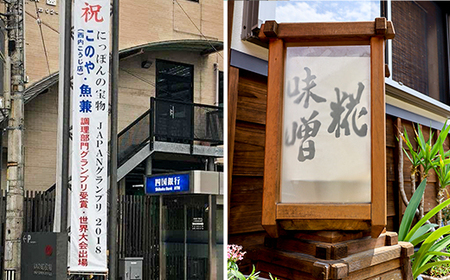 祝
にっぽんの宝物 JAPANグランプリ 2018
このや・魚兼
(西内こうじ店)
調理部門グランプリ受賞・世界大会出場
四国銀行
Shikoku Bank
糀
味噌